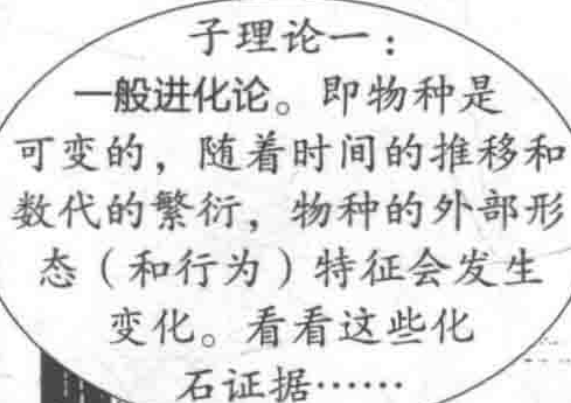 子理论一：
一般进化论。即物种是
可变的，随着时间的推移和
数代的繁衍，物种的外部形
态（和行为）特征会发生
变化。看看这些化
石证据……